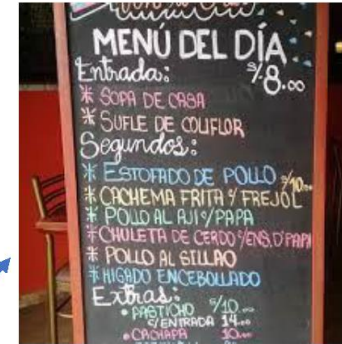 MENÚ DEL DÍA
Entrada: S/.8.00
* SOPA DE CASA
* SUFLE DE COLIFLOR
Segundos:
* ESTOFADO DE POLLO S/10.00
* CACHEMA FRITA S/ FREJOL
* POLLO AL AJI S/PAPA
* CHULETA DE CERDO S/ENS. D'PAPA
* POLLO AL SILLAO
* HIGADO ENCEBOLLADO
Extras:
• PASTICHO S/10.00
C/ENTRADA 14.00
• CACHAPA 10.00